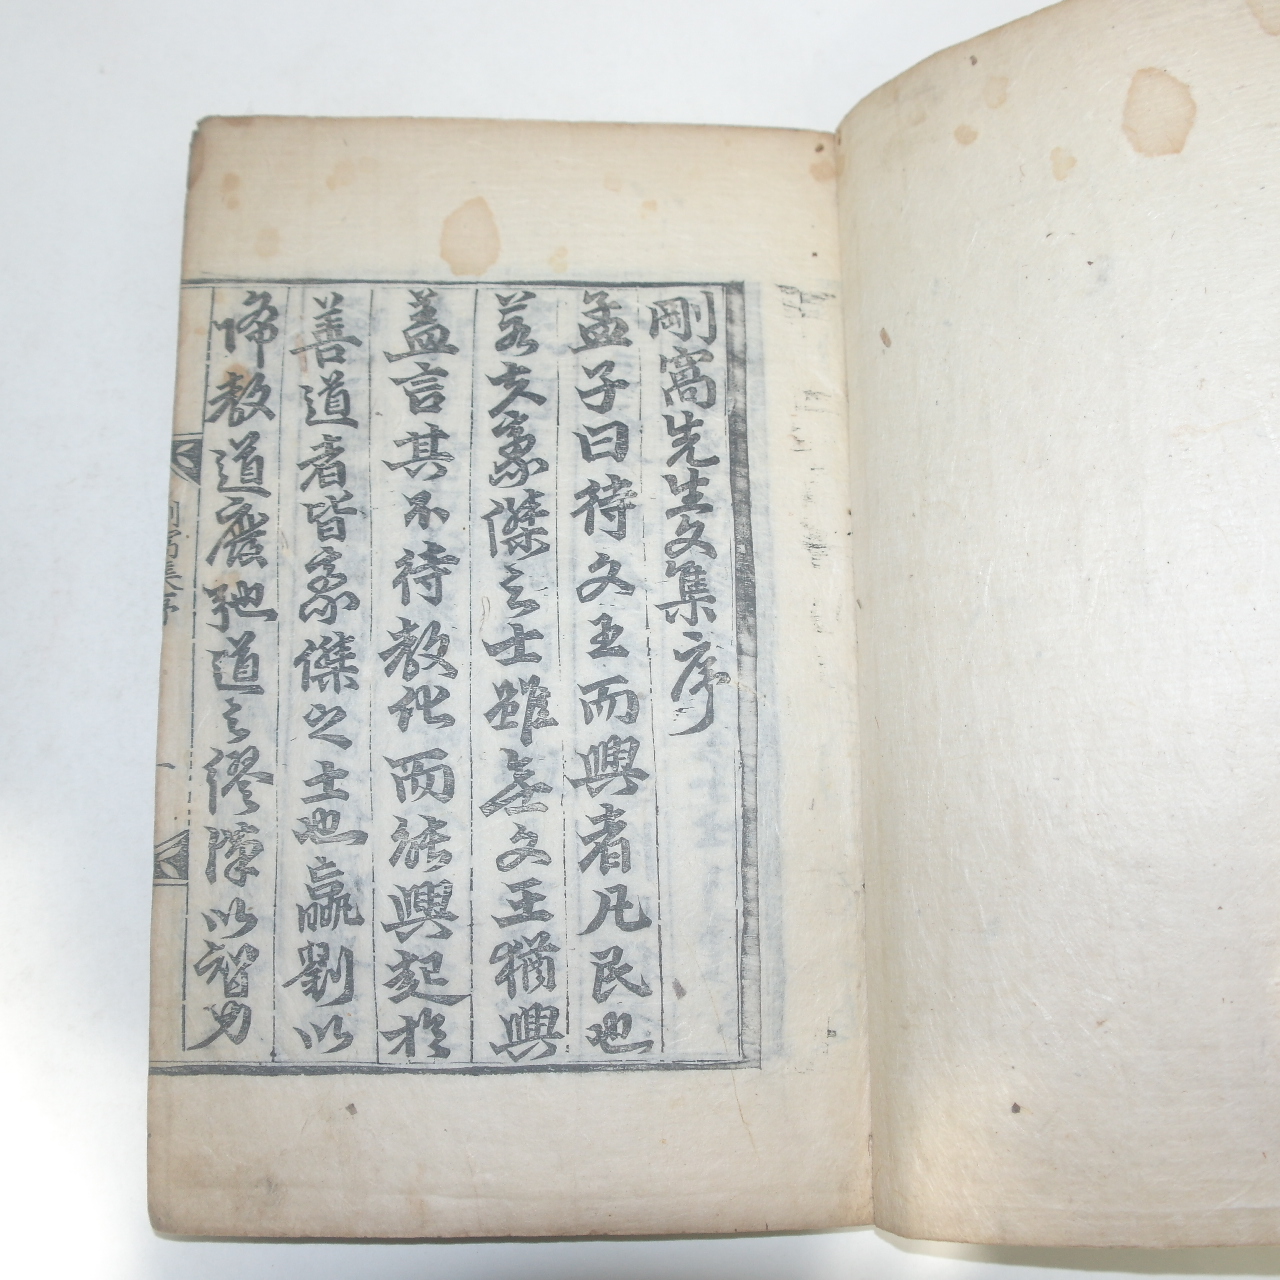 剛窩先生文集序
孟子曰待文王而興者凡民也
若夫豪傑之士雖無文王猶興
盖言其不待教化而能興起於
善道者皆豪傑之士也嬴劉以
降教道廢弛道之僇陳以智力
剛窩集序
一